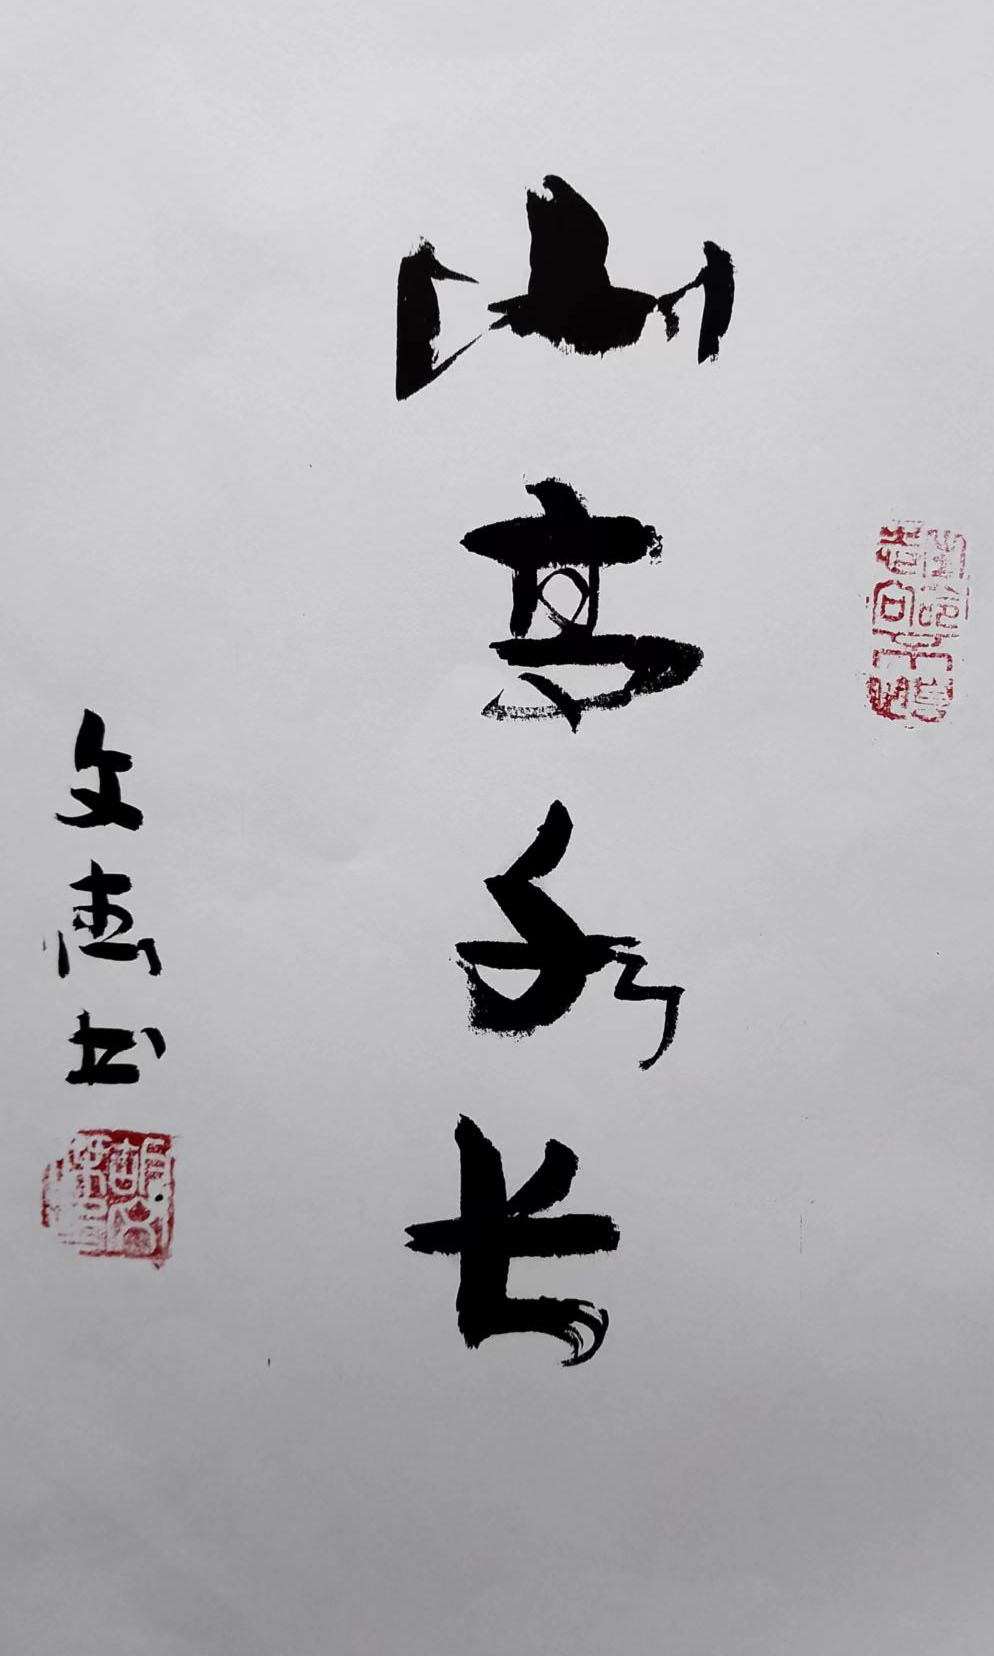 山高水长
文杰书